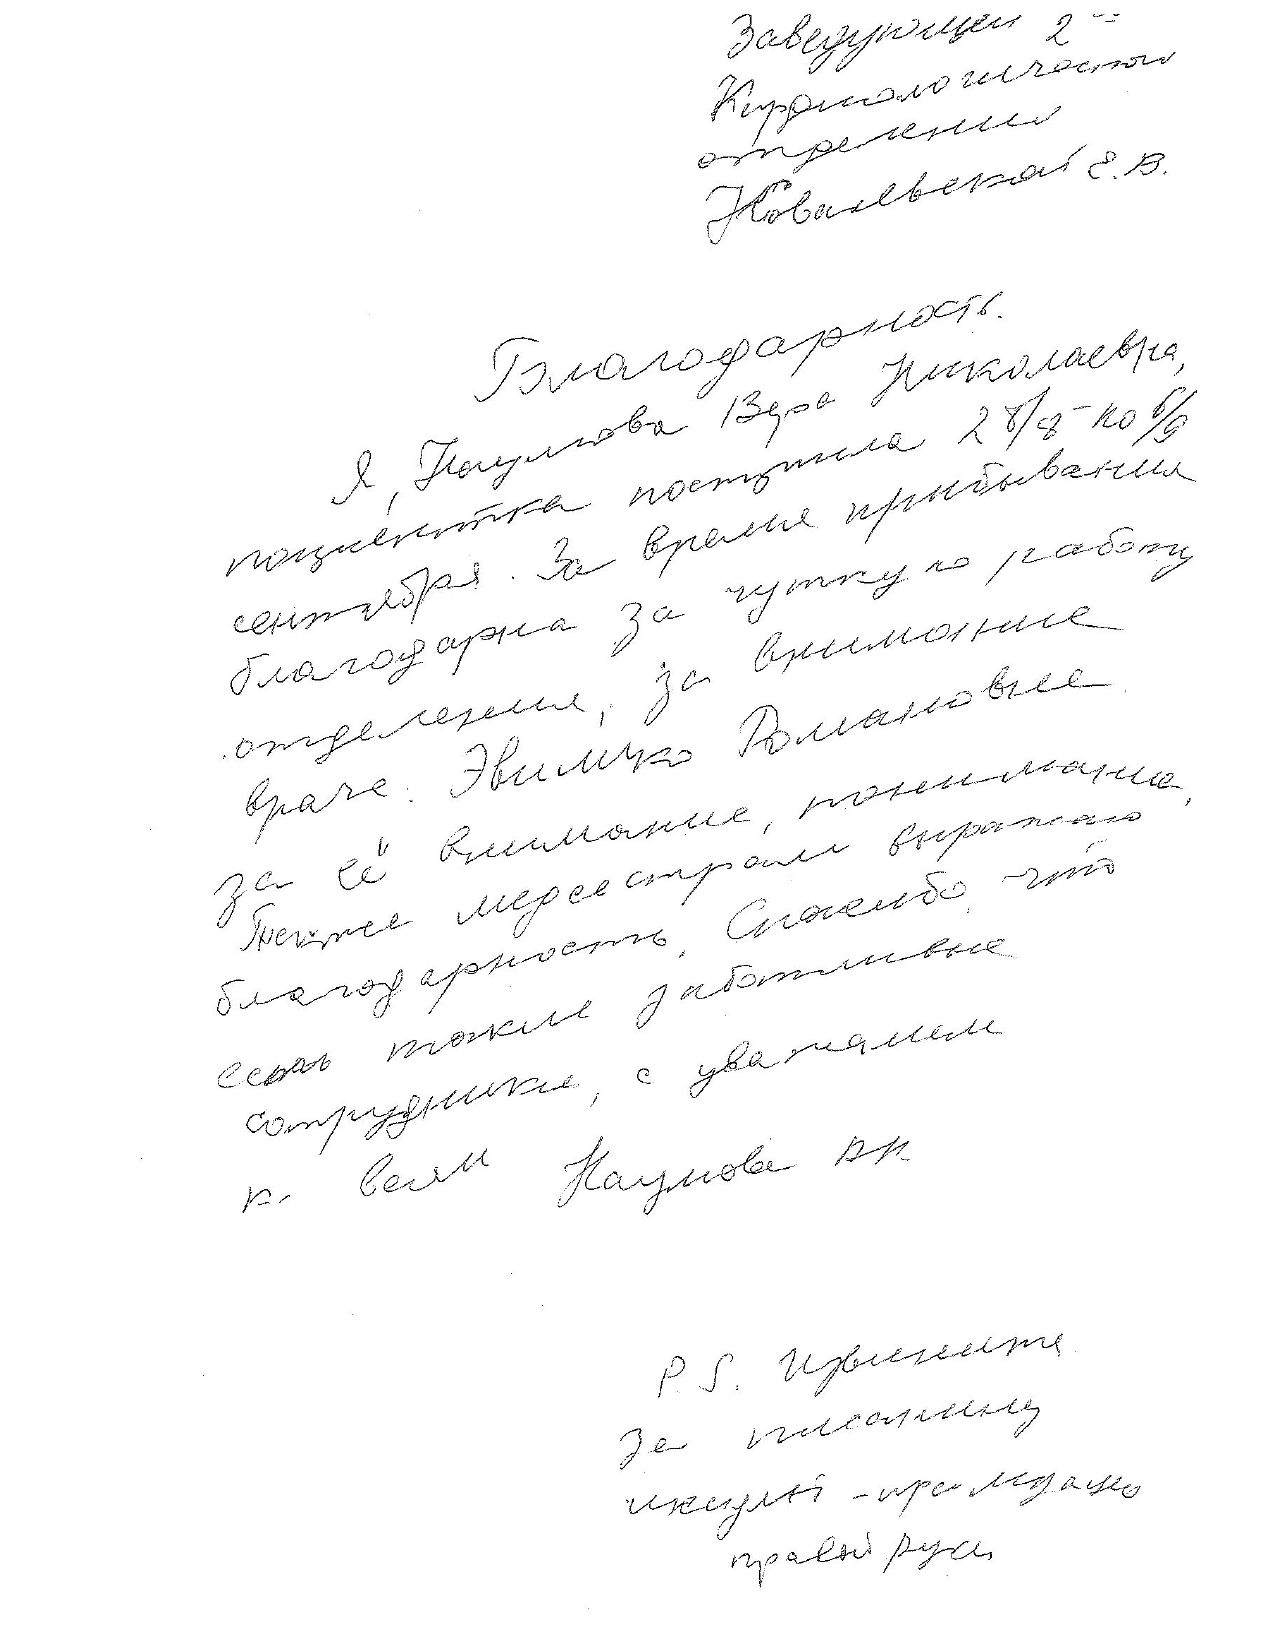 Заведующей 2ᵒᵉ
Кардиологического
отделения
Ковалевской Е.В.
Благодарность.
Я, Наумова Вера Николаевна,
пациентка поступила 28/8 - по 6/9
сентября. За время прибывания
благодарна за чуткую работу
отделения, за внимание
враче. Эвилко Романовне
за её внимание, понимание,
Также медсестрам выражаю
благодарность, Спасибо что
есть такие заботливые
сотрудники, с уважанием
к. Вам Наумова ВН
P.S. Извините
За писанину
инсульт
правой руки